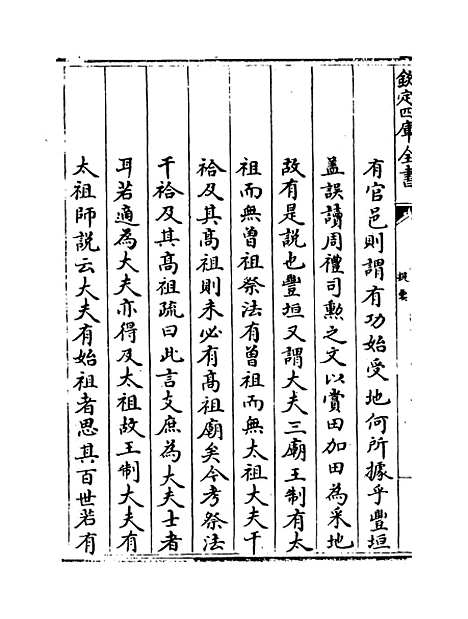 欽定四庫全書
提要
有官邑則謂有功始受地何所據乎豐垣
葢誤讀周禮司勲之文以賞田加田為采地
故有是説也豐垣又謂大夫三廟王制有太
祖而無曽祖祭法有曽祖而無太祖大夫干
祫及其髙祖則未必有髙祖廟矣今考祭法
干祫及其髙祖疏曰此言支庶為大夫士者
耳若適為大夫亦得及太祖故王制大夫有
太祖師説云大夫有始祖者思其百世若有